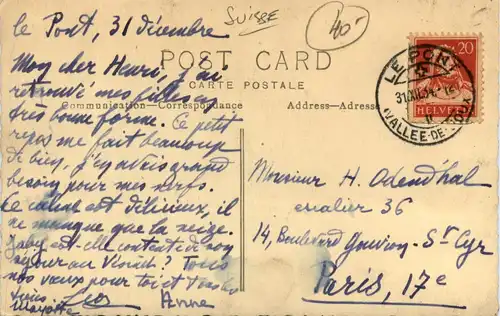 SUISSE
40.-
le Pont, 31 décembre
POST CARD
CARTE POSTALE
Communication—Correspondance
Address—Adresse
LE PONT
31.XII.24.
(VALLEE-DE-JOUX)
20
HELVETIA
Mon cher Henri, j'ai
retrouvé mes filles en
très bonne forme. Ce petit
repos me fait beaucoup
de bien, j'en avais grand
besoin pour mes nerfs.
Le calme est délicieux, il
ne manque que la neige.
Gaby est-elle contente de son
séjour au ? Tous
nos vœux pour toi et tous
Anne
Monsieur H. Odendhal
escalier 36
14, Boulevard Gouvion-St Cyr
Paris, 17e